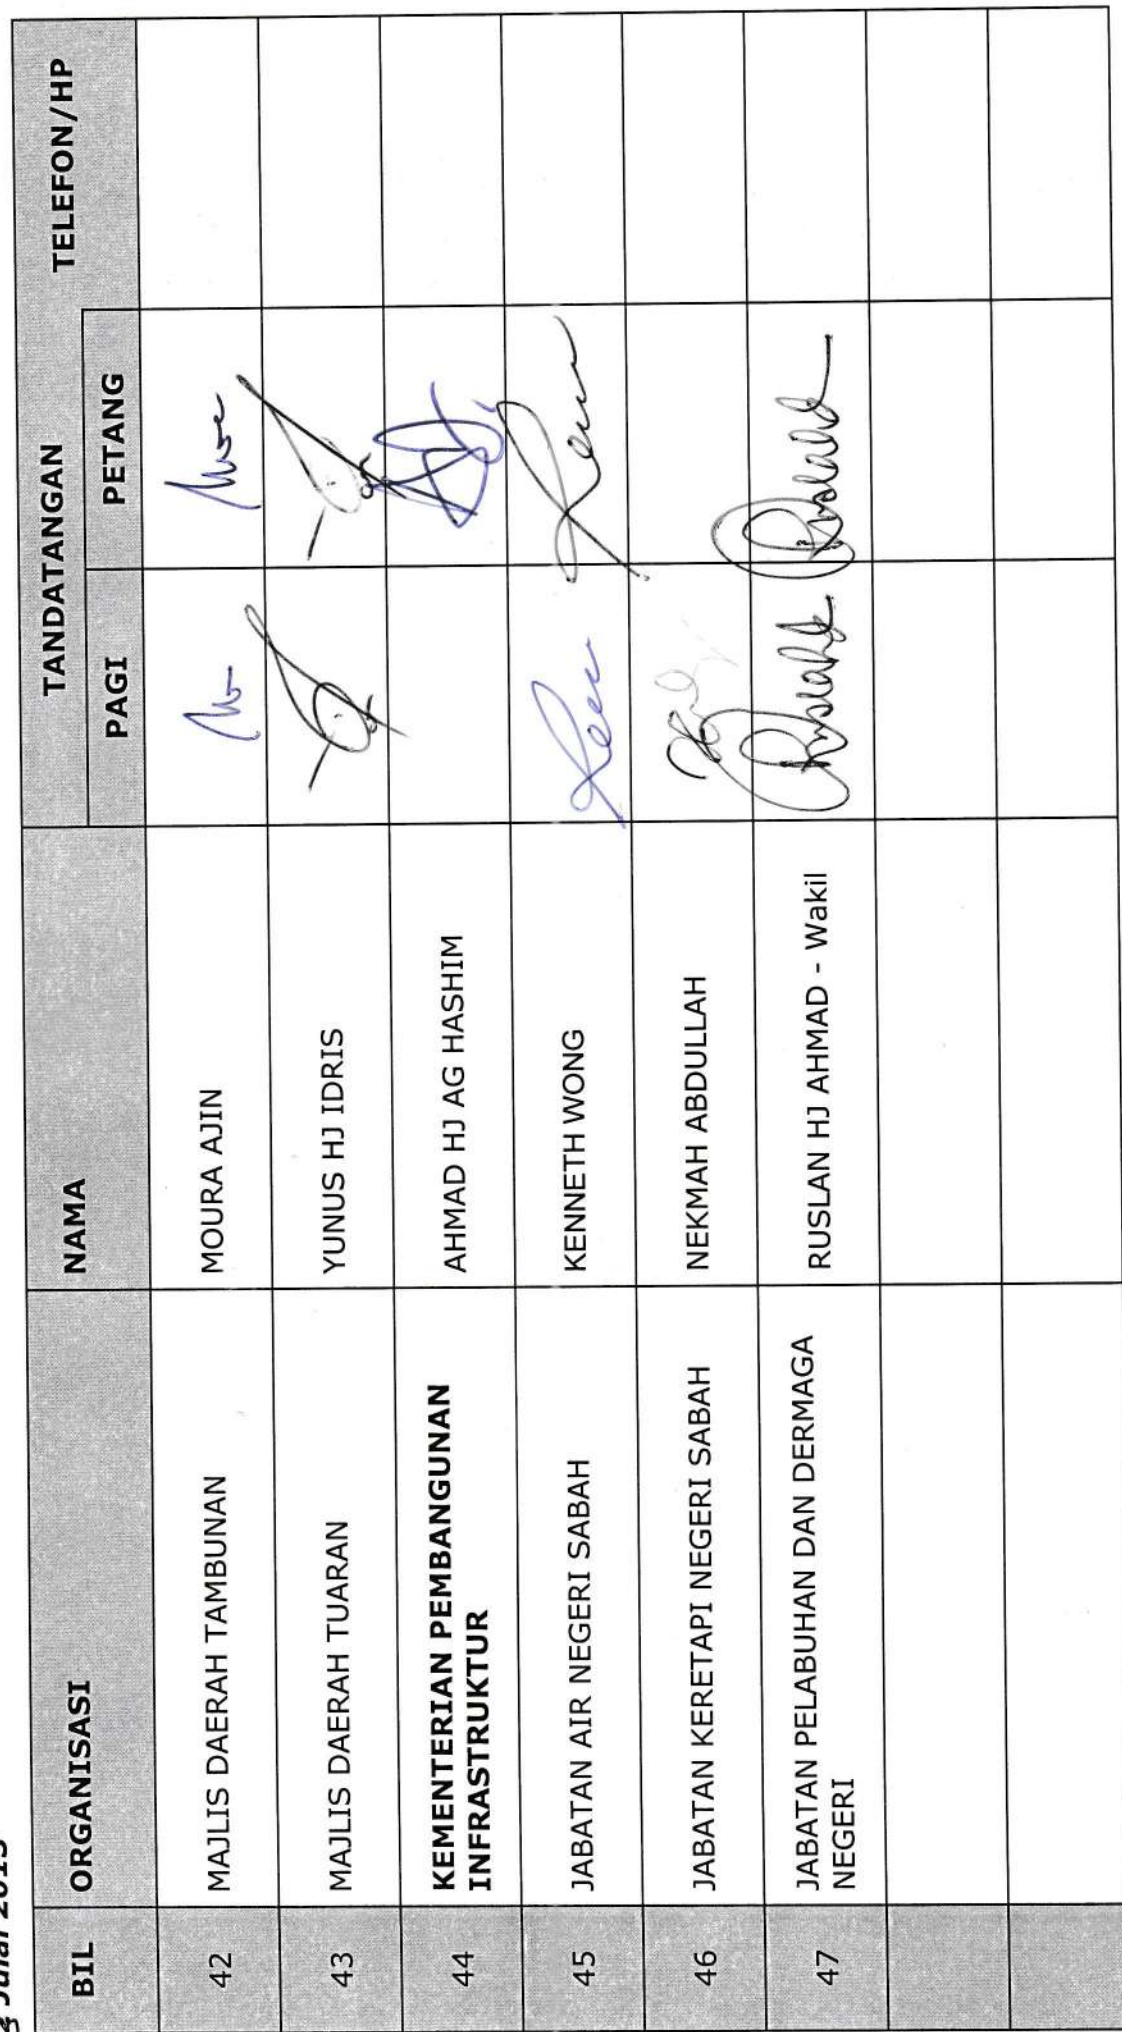 Julai 2015
BIL ORGANISASI NAMA TANDATANGAN TELEFON/HP
PAGI PETANG
42 MAJLIS DAERAH TAMBUNAN MOURA AJIN
43 MAJLIS DAERAH TUARAN YUNUS HJ IDRIS
44 KEMENTERIAN PEMBANGUNAN AHMAD HJ AG HASHIM
INFRASTRUKTUR
45 JABATAN AIR NEGERI SABAH KENNETH WONG
46 JABATAN KERETAPI NEGERI SABAH NEKMAH ABDULLAH
47 JABATAN PELABUHAN DAN DERMAGA RUSLAN HJ AHMAD - Wakil
NEGERI